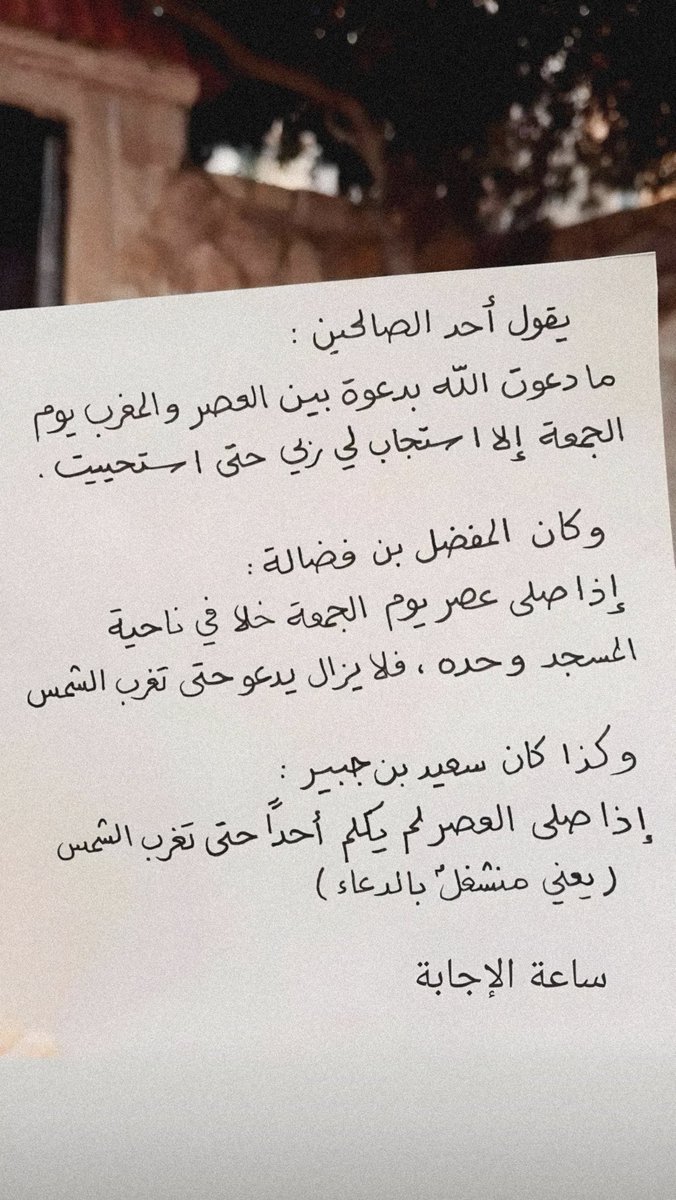 يقول أحد الصالحين :
ما دعوت الله بدعوة بين العصر والمغرب يوم
الجمعة إلا استجاب لي ربي حتى استحييت .
وكان المفضل بن فضالة :
إذا صلى عصر يوم الجمعة خلا في ناحية
المسجد وحده ، فلا يزال يدعو حتى تغرب الشمس
وكذا كان سعيد بن جبير :
إذا صلى العصر لم يكلم أحداً حتى تغرب الشمس
(يعني منشغلٌ بالدعاء)
ساعة الإجابة